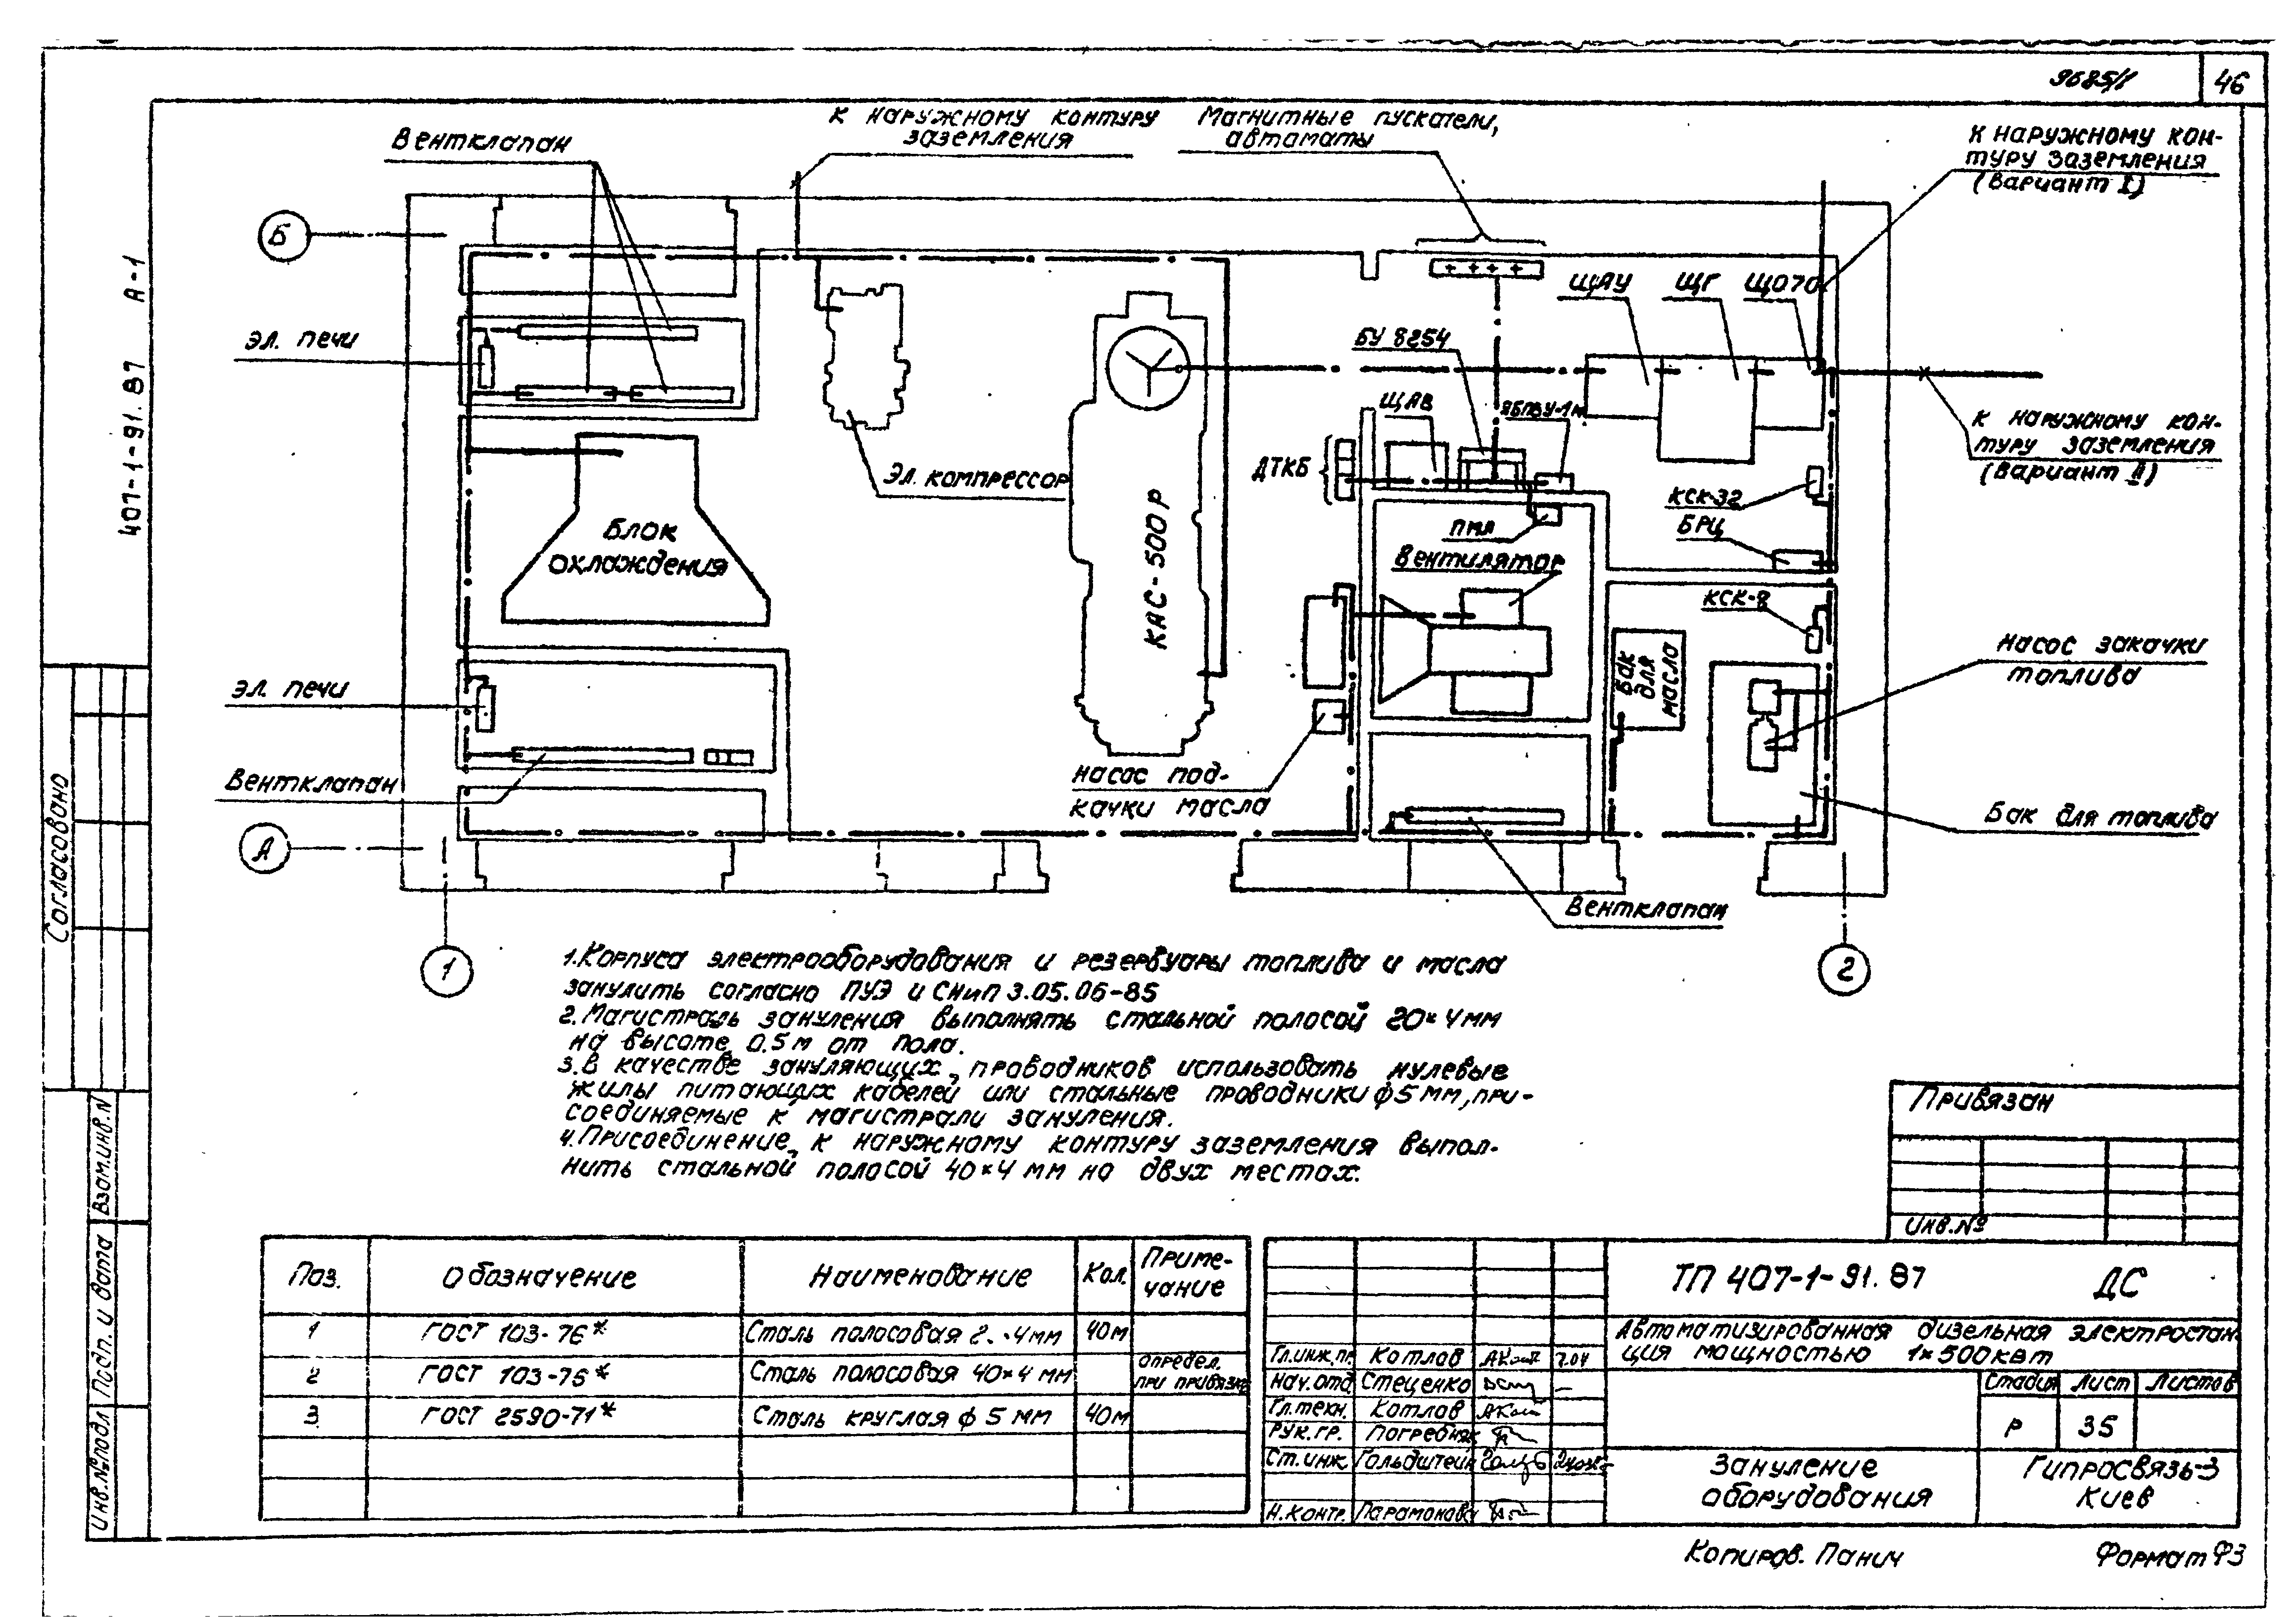 9685/1
46
К наружному контуру
заземления
Магнитные пускатели,
автоматы
К наружному кон-
туру заземления
(вариант I)
Вентклапан
Б
407-1-91.87 А-1
Эл. печи
ЩАУ
ЩГ
ЩО70
БУ 8254
ЩАВ
ЯБПВУ-1м
ДТКБ
К наружному кон-
туру заземления
(вариант II)
Эл. компрессор
КСК-32
БРЦ
Блок
охлаждения
КАС-500Р
ПМЛ
Вентилятор
КСК-8
Насос закачки
топлива
Бак
для
масла
Эл. печи
Вентклапан
Насос под-
качки масла
Бак для топлива
А
Вентклапан
1
2
1. Корпуса электрооборудования и резервуары топлива и масла
занулить согласно ПУЭ и СНиП 3.05.06-85
2. Магистраль зануления выполнять стальной полосой 20×4 мм
на высоте 0.5 м от пола.
3. В качестве зануляющих проводников использовать нулевые
жилы питающих кабелей или стальные проводники ф 5 мм, при-
соединяемые к магистрали зануления.
4. Присоединение к наружному контуру заземления выпол-
нить стальной полосой 40×4 мм на двух местах.
Согласовано
Взам.инв.N
Подп. и дата
Инв.№подл
Привязан
Инв.№
Поз.
Обозначение
Наименование
Кол.
Приме-
чание
1 ГОСТ 103-76* Сталь полосовая 4мм 40м
2 ГОСТ 103-76* Сталь полосовая 40×4 мм определ.
при привязке
3 ГОСТ 2590-71* Сталь круглая ф 5 мм 40м
ТП 407-1-91.87 ДС
Автоматизированная дизельная электростан
ция мощностью 1×500квт
Гл.инж.пр. Котлов
Нач.отд Стеценко
Гл.техн. Котлов
Рук.гр. Погребняк
Ст.инж Гольдштейн
Н.контр.
Стадия Лист Листов
Р 35
Зануление
оборудования
Гипросвязь-3
Киев
Копиров. Панич
Формат Ф3